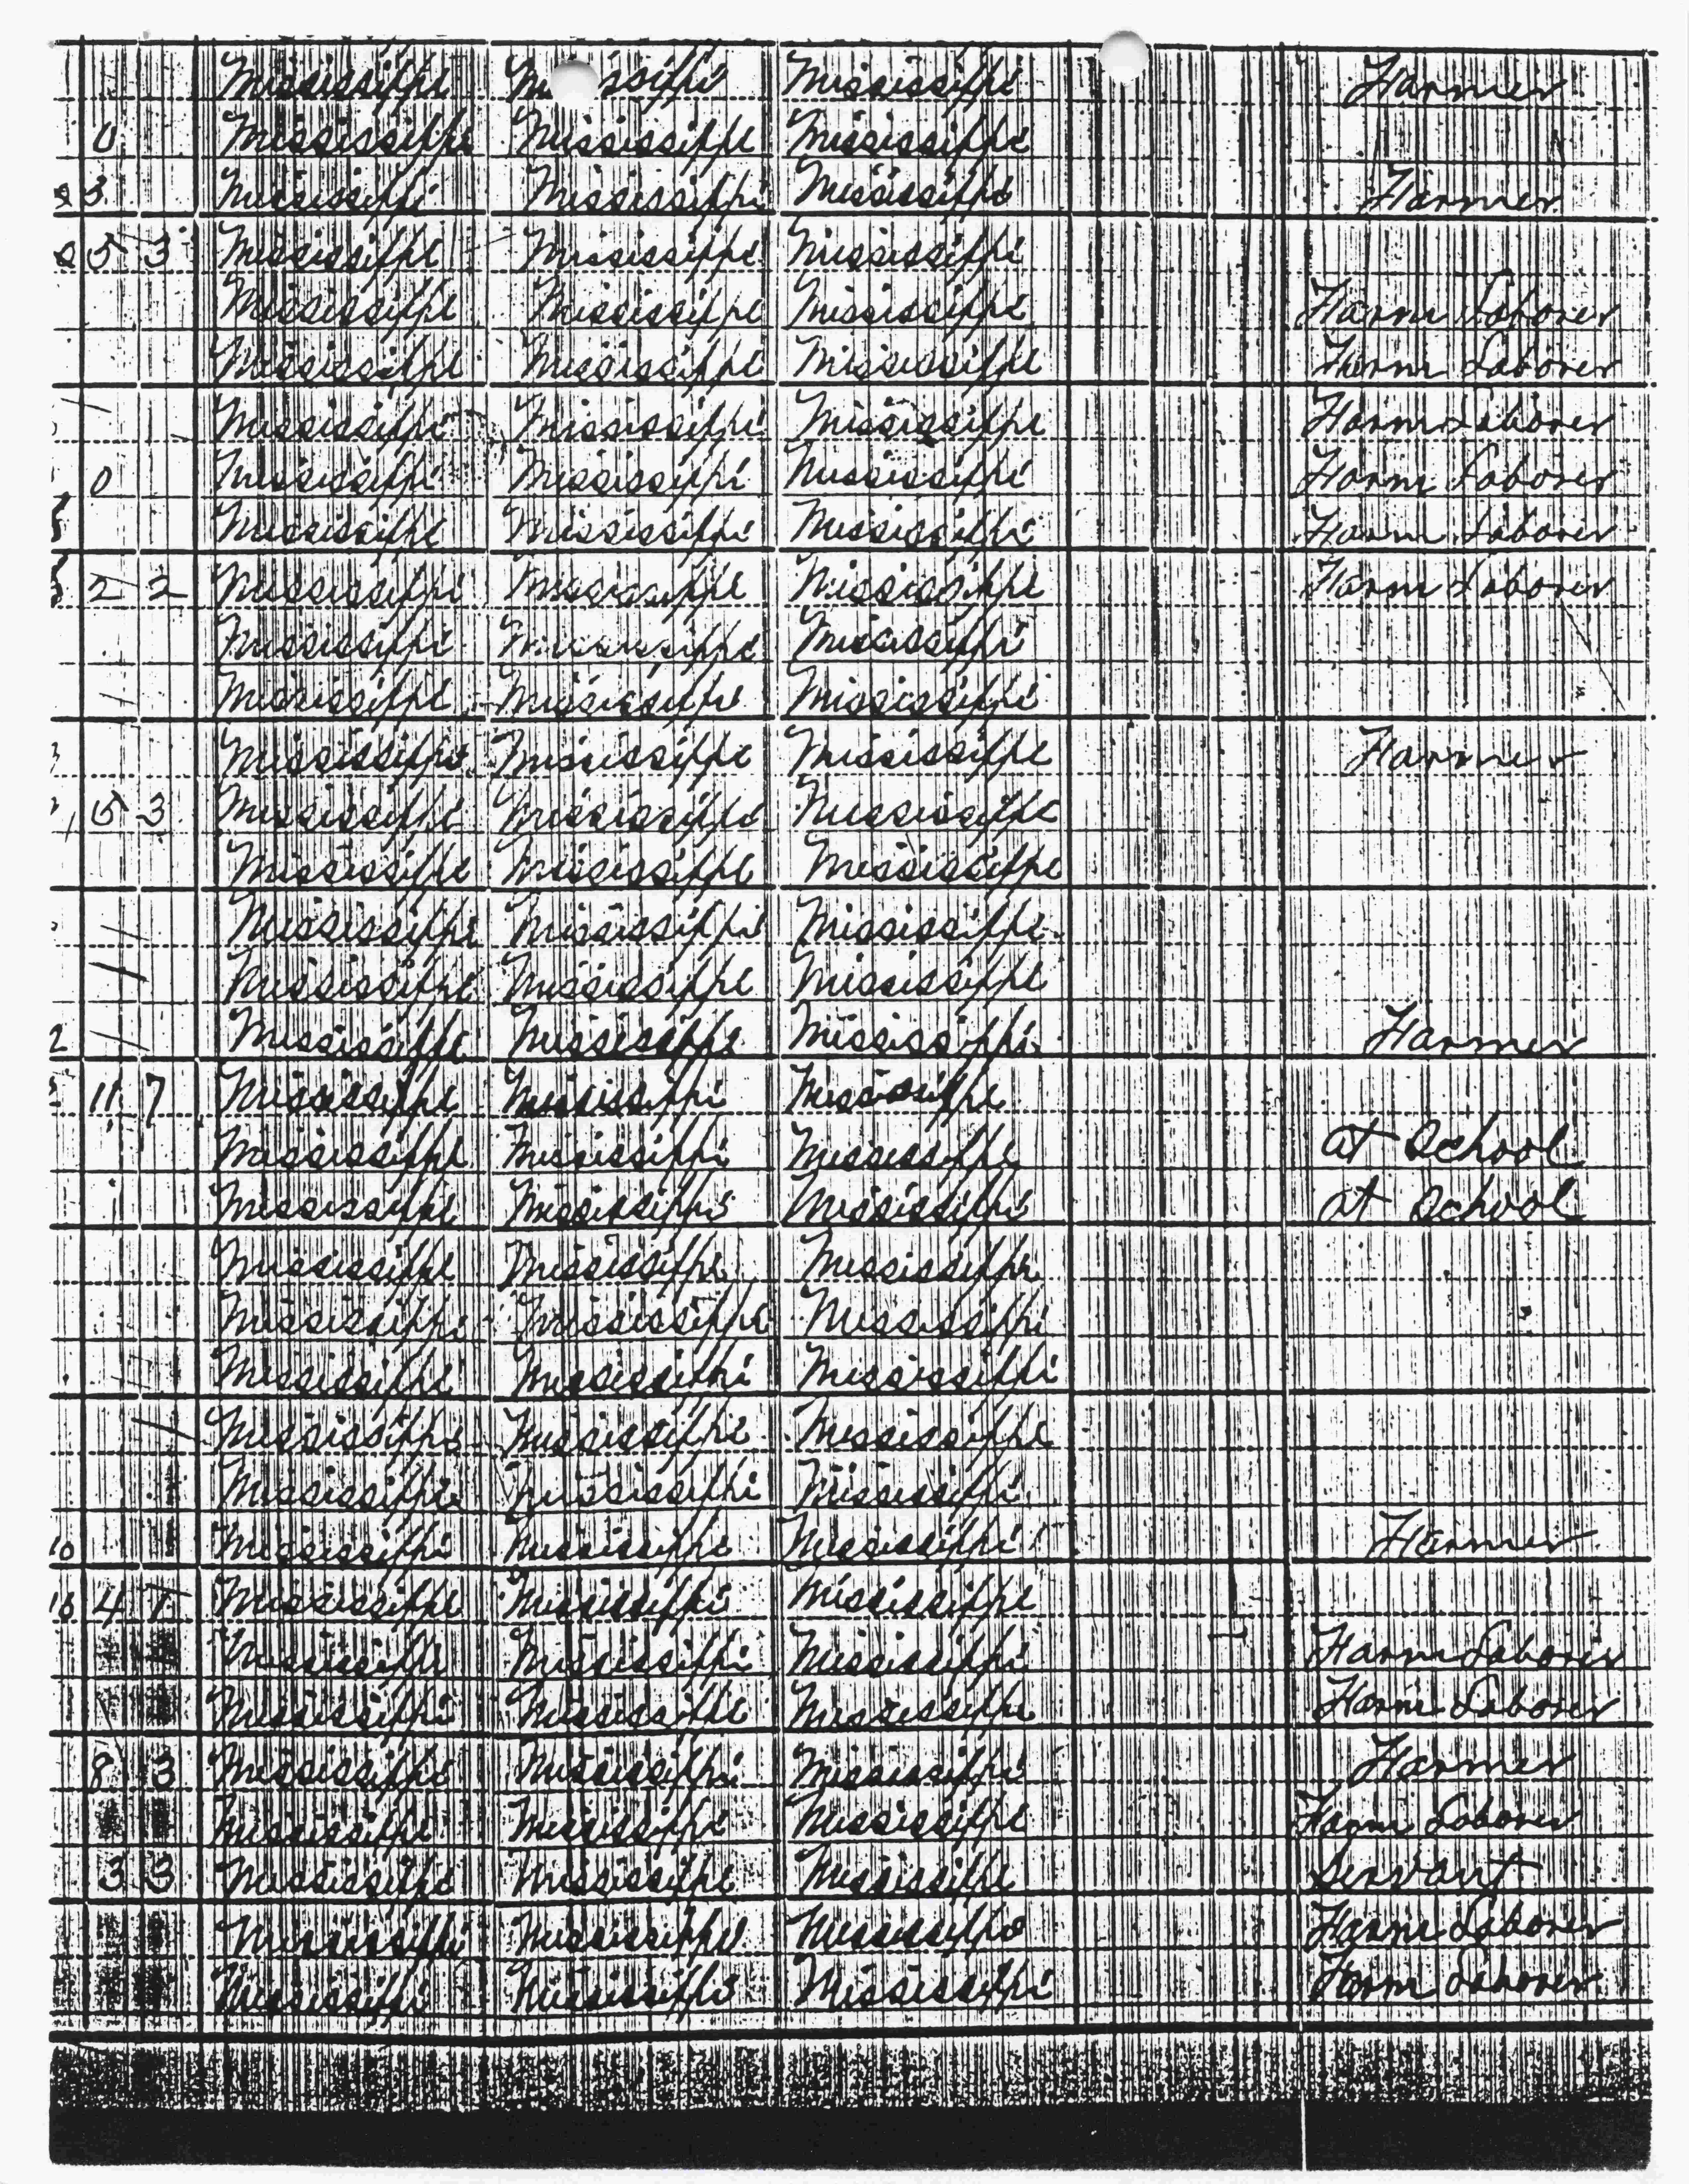 Mississippi Mississippi Mississippi Farmer
0 Mississippi Mississippi Mississippi
3 Mississippi Mississippi Mississippi Farmer
5 3 Mississippi Mississippi Mississippi
Mississippi Mississippi Mississippi Farm Laborer
Mississippi Mississippi Mississippi Farm Laborer
Mississippi Mississippi Mississippi Farm Laborer
0 Mississippi Mississippi Mississippi Farm Laborer
Mississippi Mississippi Mississippi Farm Laborer
2 2 Mississippi Mississippi Mississippi Farm Laborer
Mississippi Mississippi Mississippi
Mississippi Mississippi Mississippi
Mississippi Mississippi Mississippi Farmer
5 3 Mississippi Mississippi Mississippi
Mississippi Mississippi Mississippi
Mississippi Mississippi Mississippi
Mississippi Mississippi Mississippi
2 Mississippi Mississippi Mississippi Farmer
11 7 Mississippi Mississippi Mississippi
Mississippi Mississippi Mississippi at School
Mississippi Mississippi Mississippi at School
Mississippi Mississippi Mississippi
Mississippi Mississippi Mississippi
Mississippi Mississippi Mississippi
Mississippi Mississippi Mississippi
Mississippi Mississippi Mississippi
10 Mississippi Mississippi Mississippi Farmer
10 4 1 Mississippi Mississippi Mississippi
Mississippi Mississippi Mississippi Farm Laborer
Mississippi Mississippi Mississippi Farm Laborer
8 3 Mississippi Mississippi Mississippi Farmer
Mississippi Mississippi Mississippi Farm Laborer
3 3 Mississippi Mississippi Mississippi Servant
Mississippi Mississippi Mississippi Farm Laborer
Mississippi Mississippi Mississippi Farm Laborer